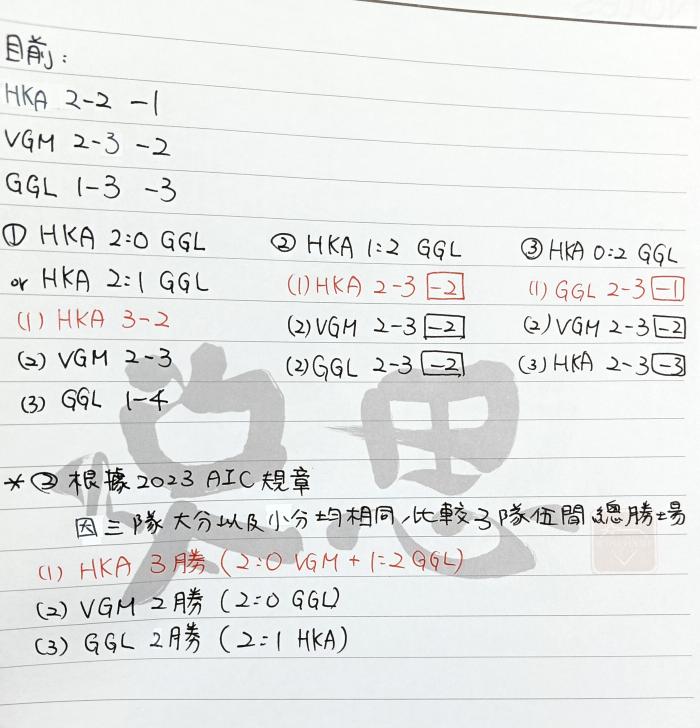 目前:
HKA 2-2 -1
VGM 2-3 -2
GGL 1-3 -3
① HKA 2:0 GGL
or HKA 2:1 GGL
(1) HKA 3-2
(2) VGM 2-3
(3) GGL 1-4
② HKA 1:2 GGL
(1) HKA 2-3 -2
(2) VGM 2-3 -2
(2) GGL 2-3 -2
③ HKA 0:2 GGL
(1) GGL 2-3 -1
(2) VGM 2-3 -2
(3) HKA 2-3 -3
* ② 根據2023 AIC規章
因三隊大分以及小分均相同,比較3隊伍間總勝場
(1) HKA 3勝 (2:0 VGM + 1:2 GGL)
(2) VGM 2勝 (2:0 GGL)
(3) GGL 2勝 (2:1 HKA)